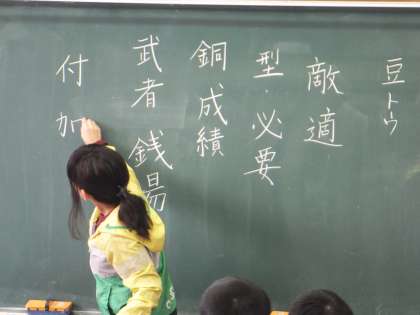 豆トウ
敵適
型・必要
銅成績
武者銭湯
付加